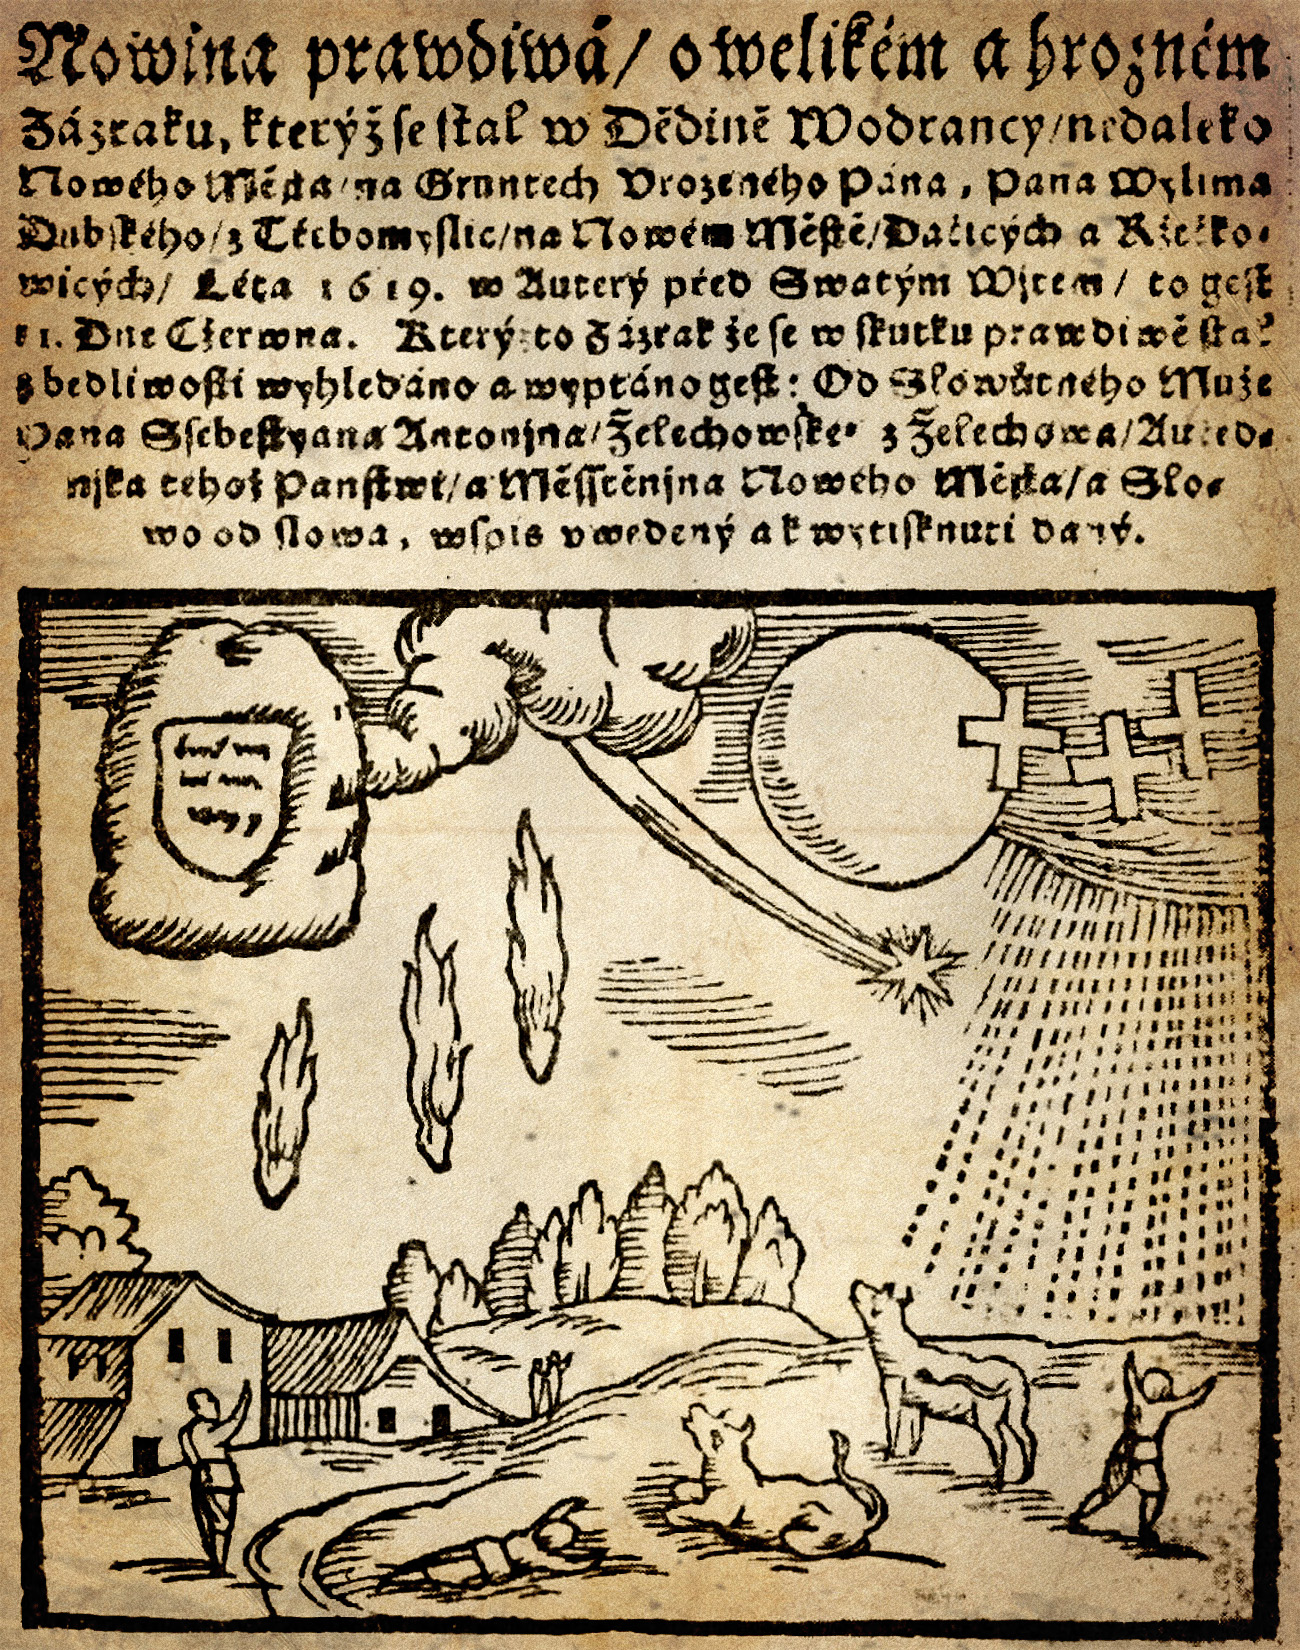 Nowina prawdiwá/ o welikém a hrozném
Zázraku, kterýž se stal w Dědině Wodrancy/nedaleko
Nowého Města/na Gruntech Vrozeného Pána, Pana Wylima
Dubského/z Třebomyslic/na Nowém Městě/Dačicých a Ržečko-
wicých/ Léta 1619. w Auterý před Swatým Wjtem/ to gest
11. Dne Čzerwna. Který to Zázrak že se w skutku prawdiwě stal
z bedliwosti wyhledáno a wyptáno gest: Od Slowůtného Muže
Pana Ssebestyana Antonjna/Želechowske° z Želechowa/Auředl-
njka tehož Panstwí/a Měsstěnjna Nowého Města/a Slo-
wo od slowa, wspis vwedený a k wytisknutí daný.